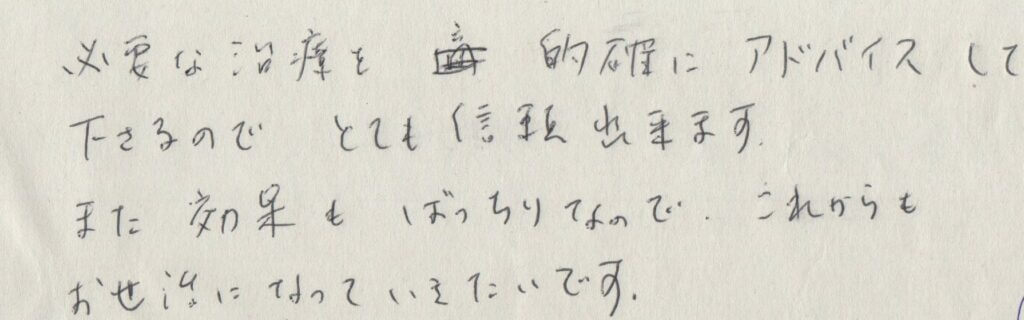 必要な治療を 的確に アドバイスして
下さるので とても信頼出来ます.
また 効果も ばっちりなので. これからも
お世治になっていきたいです.